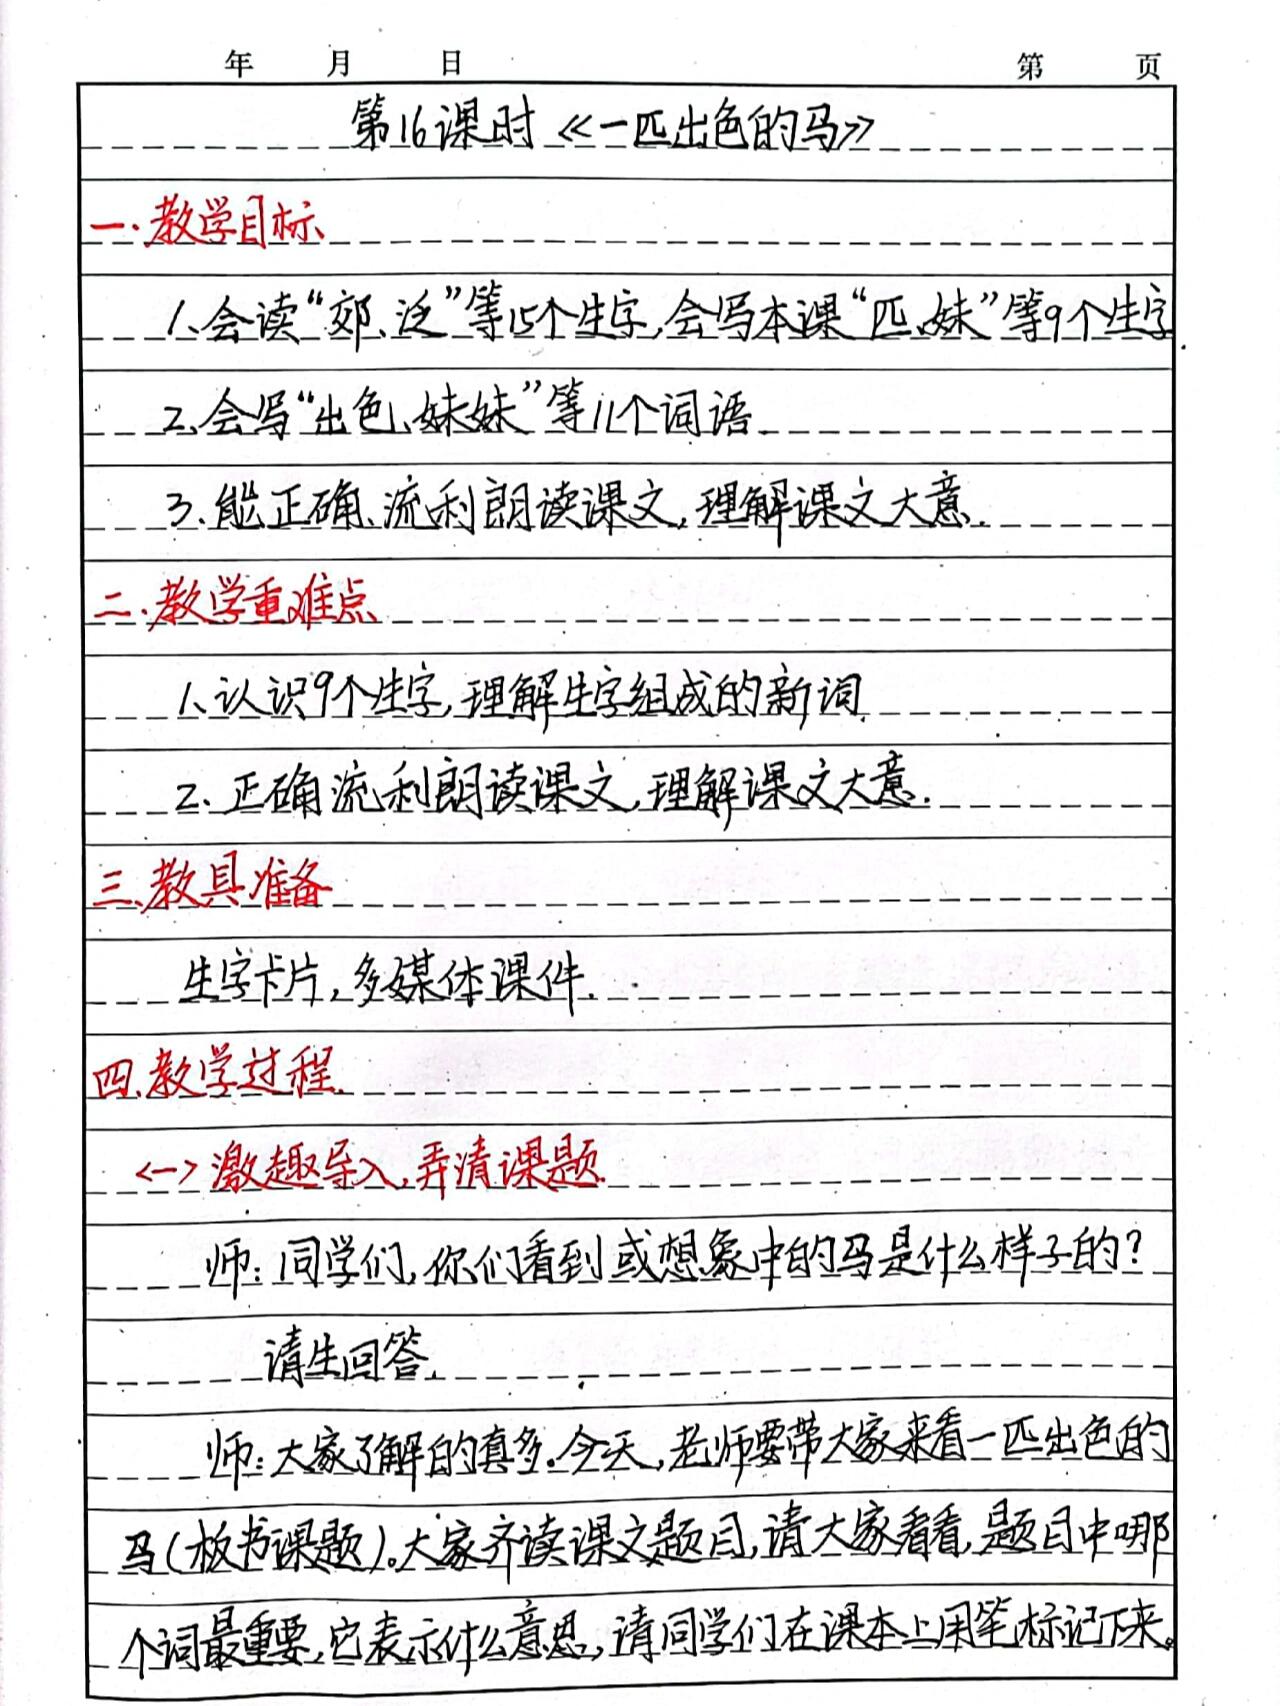 年 月 日 第 页
第16课时《一匹出色的马》
一.教学目标
1.会读“郊、泛”等15个生字,会写本课“匹、妹”等9个生字
2.会写“出色、妹妹”等11个词语.
3.能正确、流利朗读课文,理解课文大意.
二.教学重难点
1.认识9个生字,理解生字组成的新词.
2.正确流利朗读课文,理解课文大意.
三.教具准备
生字卡片,多媒体课件.
四.教学过程.
<一>激趣导入,弄清课题.
师:同学们,你们看到或想象中的马是什么样子的?
请生回答.
师:大家了解的真多.今天,老师要带大家来看一匹出色的
马(板书课题)。大家齐读课文题目,请大家看看,题目中哪
个词最重要,它表示什么意思,请同学们在课本上用笔标记下来。